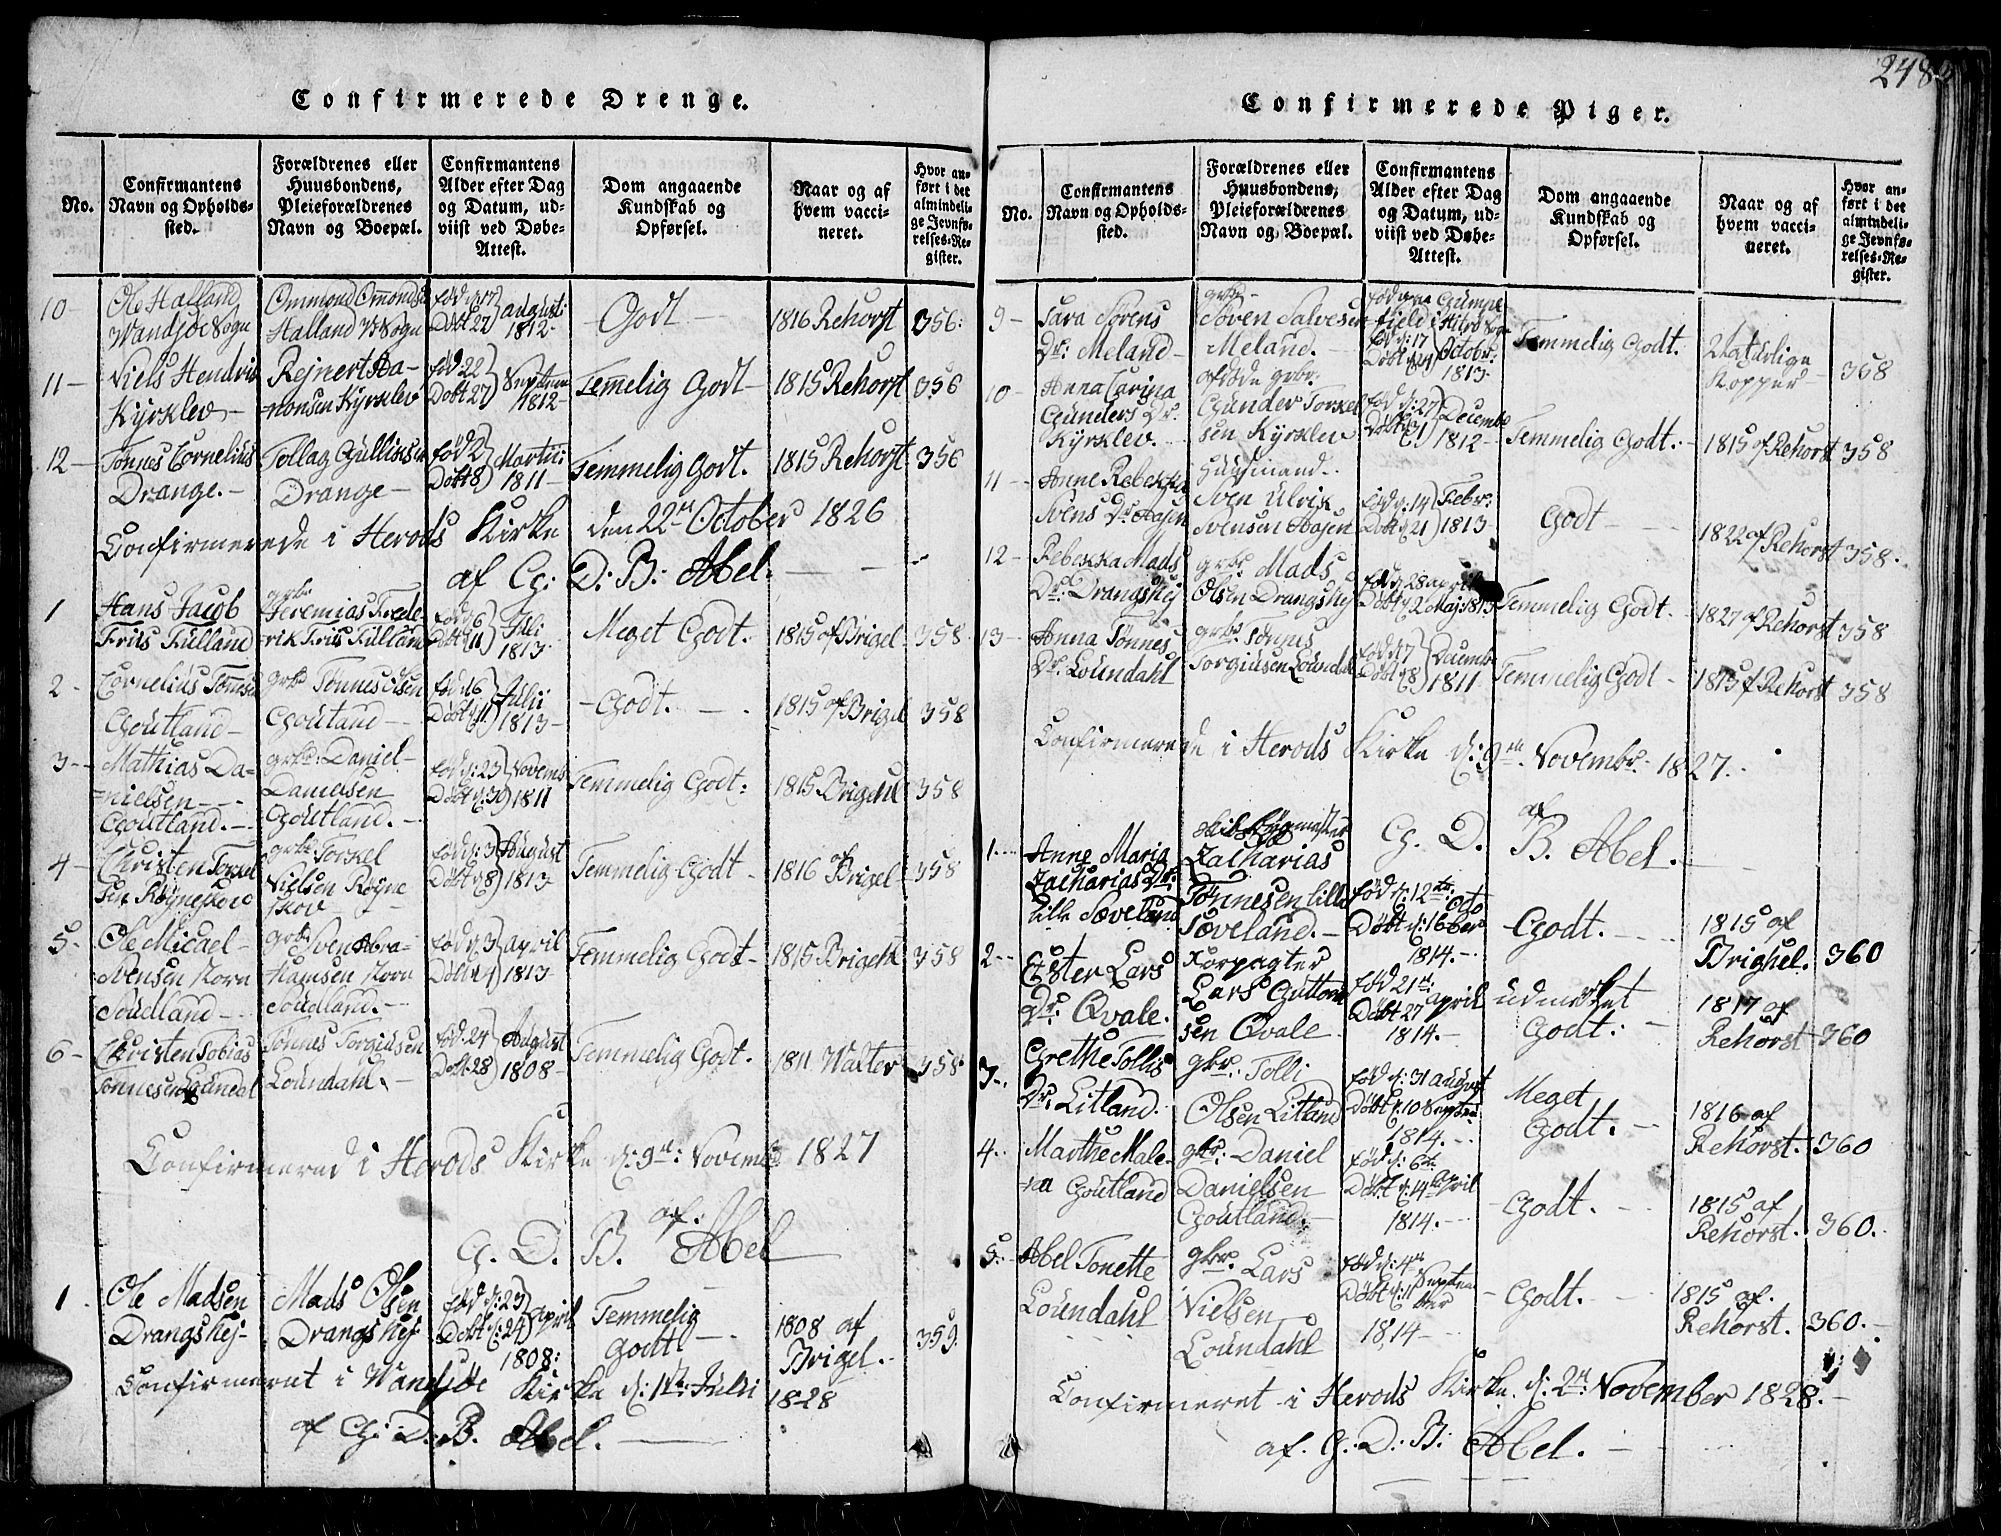 248
Confirmerede Drenge.
No.
Confirmantens Navn og Opholds-sted.
Forældrenes eller Huusbondens, Pleieforældrenes Navn og Boepæl.
Confirmantens Alder efter Dag og Datum, ud-viist ved Døbe-Attest.
Dom angaaende Kundskab og Opførsel.
Naar og af hvem vacci-neret.
Hvor an-ført i det almindeli-ge Jevnfø-relses-Re-gister.
10 Ole Halland Wandsøe Sogn
Ommond Halland Sogn
fød 17 Døbt 22 Augusti 1812
Godt
1816 Rehorst
356
11 Niels Hendrik Kyrklev
Rejnert Ha-nonsen Kyrklev
fød 22 Døbt 27 1812
Temelig Godt
1815 Rehorst
356
12 Tønnes Cornelius Drange.
Tollag Gullixsen Drange
fød 2 Døbt 8 Martii 1811
Temmelig Godt.
1815 Rehorst
356
Confirmerede i Herods Kirke den 22de October 1826
af G: D: B: Abel.
1 Hans Jacob Frits Fulland
grbr Jeremias Frede-rik Fris Fulland
fød 6 Døbt 11 Juli 1813
Meget Godt.
1815 af Brigel
358
2 Cornelius Tønnesen Goutland
grbr Tønnes Olsen Goutland
fød 6 Døbt 11 Julii 1813
Godt.
1815 af Brigel
358
3 Mathias Da-nielsen Goutland.
grbr: Daniel Danielsen Goutland.
fød d: 23 Døbt d: 30 Novemb 1811
Temmelig Godt:
1815 Brigel
358
4 Christen Torkelsen Røyneskov
grbr Torkel Nielsen Røyneskov
fød d: 3 Døbt d 8 August 1813
Temmelig Godt
1816 af Brigel
358
5 Ole Micael Svensen Store Soudland
grbr Sven Abra-hamsen Store Soudland.
fød d 3 Døbt 4 April 1813
Temmelig Godt
1815 Brigel
358
6 Christen Tobias Tønnesen Loundal
Tønnes Torgiusen Loundahl.
fød. 24 Døbt 28 August 1808
Temmelig Godt.
1811 Walter
358
Confirmered i Herods Kirke d: 9de: Novemb 1827
af:
G. D. B. Abel
1. Ole Madsen Drangshej
Mads Olsen Drangshej
fød d: 23 Døbt d: 24 April 1808:
Temmelig Godt
1808 af Brigel.
359
Confirmeret i Wandsøe Kirke d: 1ste: Julii 1828
af G: D: B. Abel.
Confirmerede Piger.
No.
Confirmantens Navn og Opholds-sted.
Forældrenes eller Huusbondens, Pleieforældrenes Navn og Boepæl.
Confirmantens Alder efter Dag og Datum, ud-viist ved Døbe-Attest.
Dom angaaende Kundskab og Opførsel.
Naar og af hvem vacci-neret.
Hvor an-ført i det almindeli-ge Jevnfø-relses-Re-gister.
9 Sara Sørens Dr: Meland
grbr Søren Salvesen Meland.
fød d: 17 Døbt d 24 Octobr. 1813
Temmelig Godt.
Naturlige Kopper
358
10 Anna Carina Gunders Dr. Kyrklev
afdøde grbr: Gunder Torkel-sen Kyrklev
fød d: 27 Døbt d: 31 Decembr 1812
Temmelig Godt.
1815 af Rehorst
358
11 Anne Rebekka Svens Dr Hajen
Huusmand Sven Ulrik Svensen Hajen
fød d: 14 Døbt d 21 Febr: 1813
Godt
1822 af Rehorst
358.
12 Rebekka Mads Dr. Drangshej
grbr Mads Olsen Drangshej
fød d 28 April Døbt d 2 Maj: 1813
Temmelig Godt.
1827 af Rehorst
358
13 Anna Tønnes Dr. Loundahl
grbr: Tønnes Torgiusen Loundal
fød d 7 Døbt d 8 Decemb 1811
Temmelig Godt
1815 af Rehorst
358
Confirmerede i Herods Kirke d: 9de. Novembr. 1827.
af
G. D. B. Abel.
1. Anne Maria Zacharias Dr: lille Sæveland
Skibsbygmester Zacharias Tønnesen lille Sæveland.
fød d: 12te: Døbt d: 16 Octo ber 1814.
Godt.
1815 af Brighel.
360
2. Ester Lars Dr: Qvale.
Forpagter Lars Guttorm-sen Qvale
fød 21de: Døbt 27 April 1814.
udmerket Godt:
1817 af Rehorst
360
3. Grethe Tollis Dr: Litland.
gbr: Tolli Olsen Litland
fød d: 31 August Døbt d: 10 Septem: 1814.
Meget Godt.
1816 af Rehorst.
360
4. Marthe Male-na Goutland
gbr: Daniel Danielsen Goutland.
fød d: 6te Døbt d: 14 April 1814.
Godt.
1815 af Rehorst.
360.
5. Abel Tonette Loundahl
gbr. Lars Nielsen Loundahl
fød d: 4de Døbt d: 11 Septem ber 1814
Godt.
1815 af. Rehorst.
360.
Confirmeret i Herods Kirke. d: 2de: November 1828.
af. G: D: B: Abel.